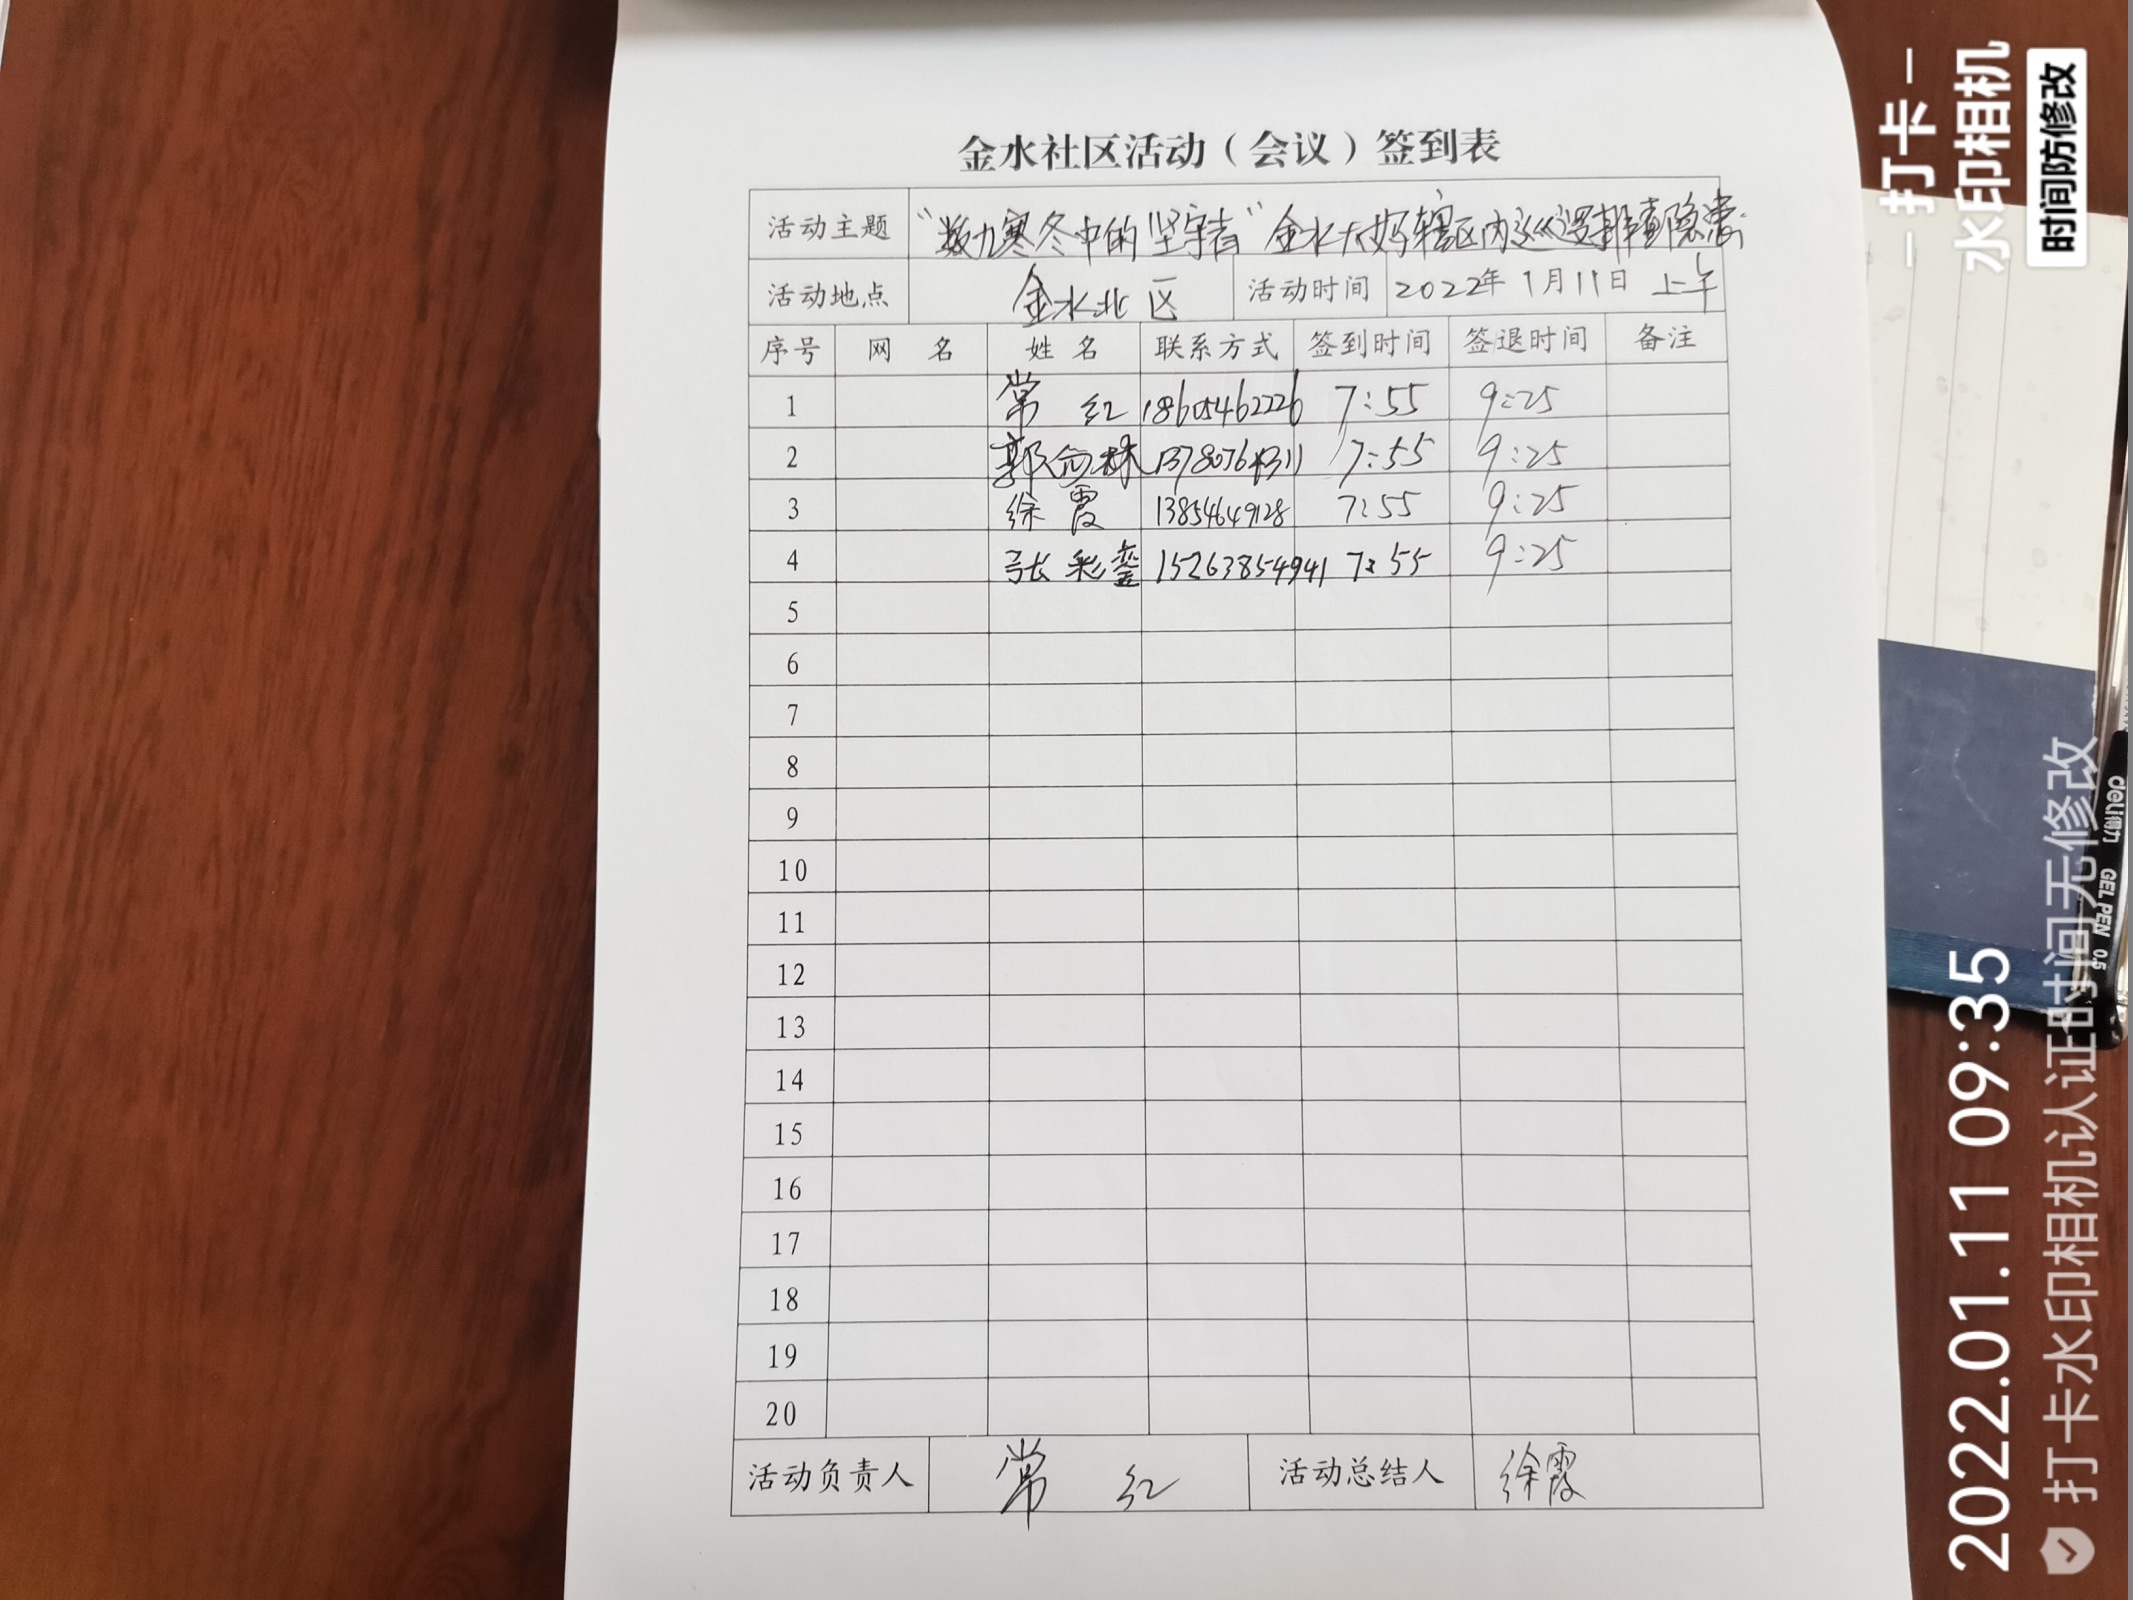 金水社区活动（会议）签到表
活动主题 “数九寒冬中的坚守者”金水大妈辖区内巡逻排查隐患
活动地点 金水北区 活动时间 2022年1月11日 上午
序号 网 名 姓 名 联系方式 签到时间 签退时间 备注
1 常 红 18605462226 7:55 9:25
2 郭 林 7:55 9:25
3 徐 霞 13854649128 7:55 9:25
4 张彩銮 15263854941 7:55 9:25
5
6
7
8
9
10
11
12
13
14
15
16
17
18
19
20
活动负责人 常 红 活动总结人 徐霞
打卡
水印相机
时间防修改
2022.01.11 09:35
打卡水印相机认证时间无修改
deli得力 GEL PEN 0.5